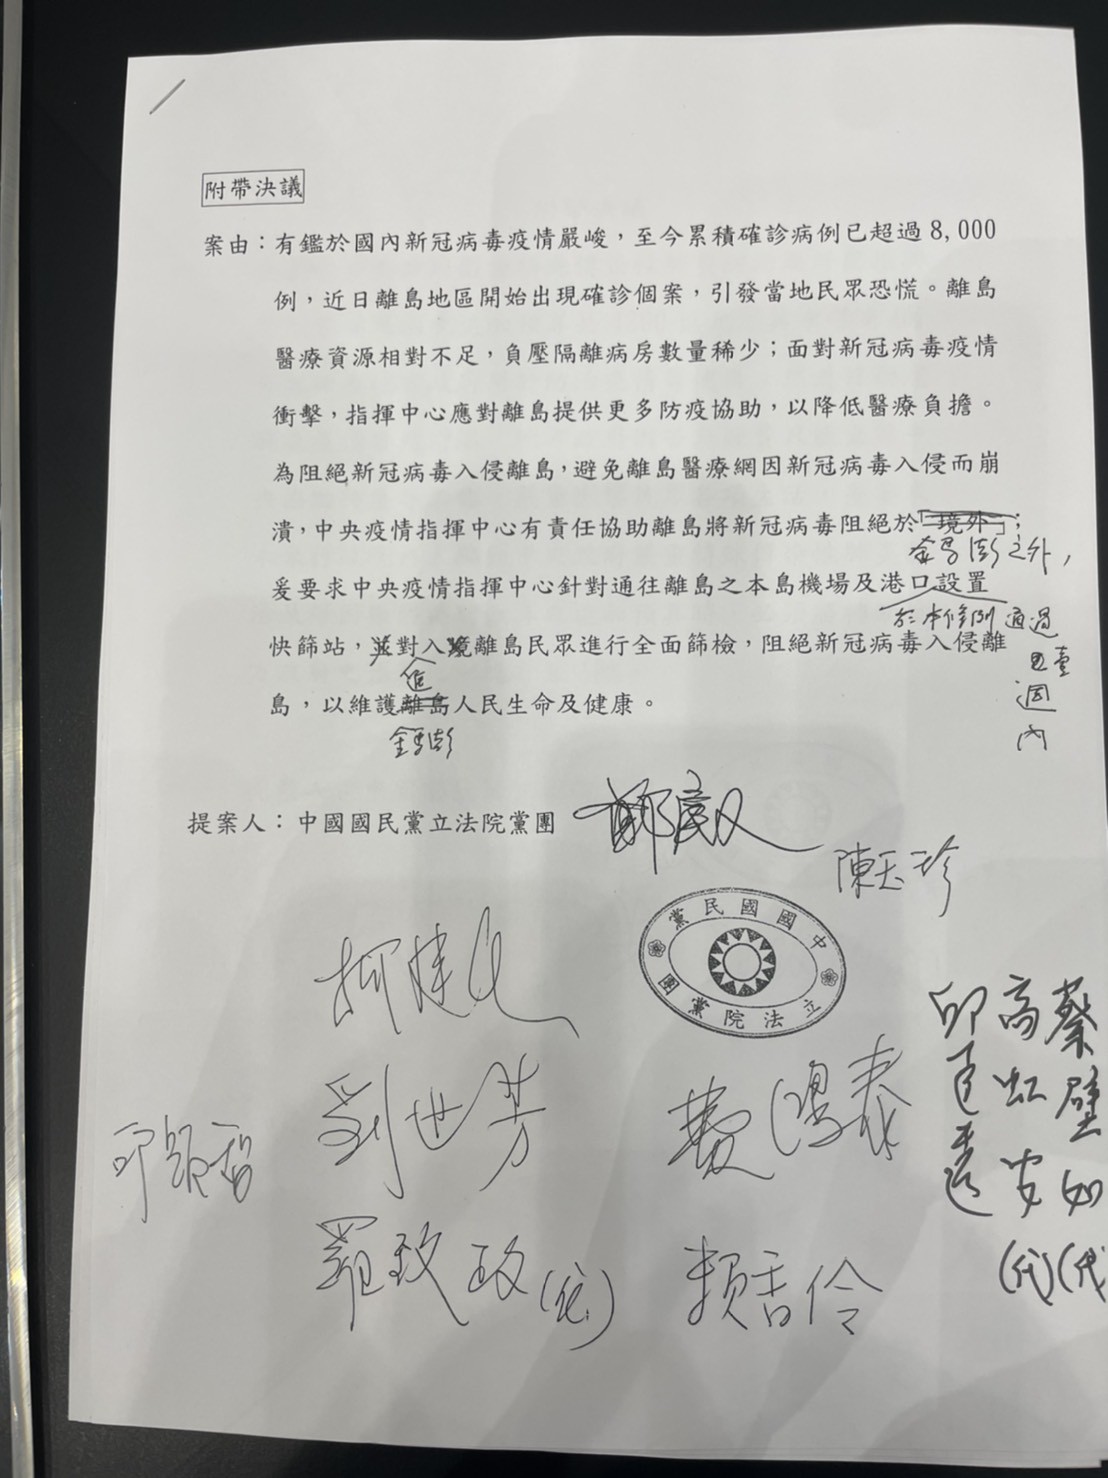 附帶決議
案由：有鑑於國內新冠病毒疫情嚴峻，至今累積確診病例已超過8,000
例，近日離島地區開始出現確診個案，引發當地民眾恐慌。離島
醫療資源相對不足，負壓隔離病房數量稀少；面對新冠病毒疫情
衝擊，指揮中心應對離島提供更多防疫協助，以降低醫療負擔。
為阻絕新冠病毒入侵離島，避免離島醫療網因新冠病毒入侵而崩
潰，中央疫情指揮中心有責任協助離島將新冠病毒阻絕於「境外」；
金馬澎之外，
爰要求中央疫情指揮中心針對通往離島之本島機場及港口設置
於本條例通過
壹
週
內
快篩站，並對入境離島民眾進行全面篩檢，阻絕新冠病毒入侵離
進
島，以維護離島人民生命及健康。
金馬澎
提案人：中國國民黨立法院黨團
陳玉珍
中國國民黨
立法院黨團
柯建
劉世芳
費鴻泰
邱顯智
羅致政(代)
賴香伶
蔡壁如(代
高虹安(代)
邱臣遠